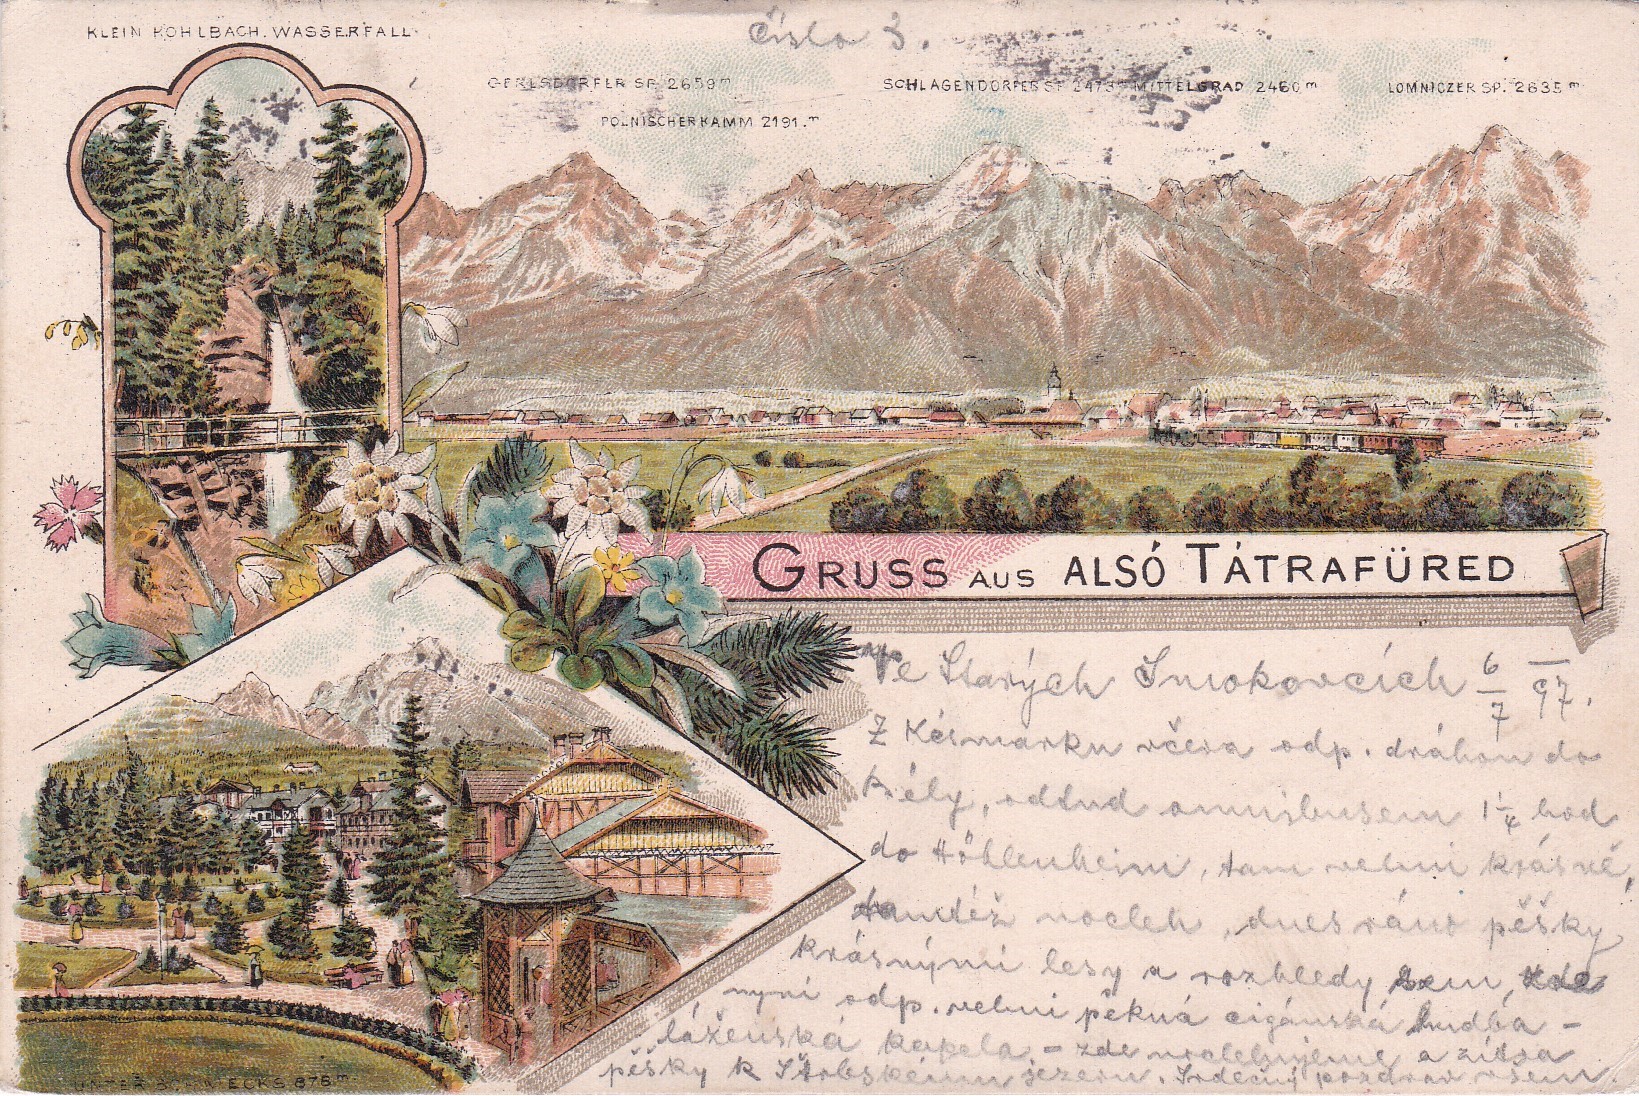 KLEIN KOHLBACH. WASSERFALL.
Číslo 3.
GERLSDORFER SP. 2659 m
SCHLAGENDORFER SP. 2473 m MITTELGRAD 2460 m
LOMNICZER SP. 2635 m
POLNISCHERKAMM 2191. m
GRUSS AUS ALSÓ TÁTRAFÜRED
Ve Starých Smokovcích 6/7 97.
Z Késmarku včera odp. dráhou do
Bély, odtud omnibusem 1 1/4 hod
do Höhlenheim, tam velmi krásně,
tamtéž nocleh, dnes ráno pěšky
krásnými lesy a rozhledy sem, zde
nyní odp. velmi pěkná cigánská hudba –
lázeňská kapela – zde nocležujeme a zítra
pěšky k Štrbskému jezeru. Srdečný pozdrav všem.
UNTER SCHMECKS 876 m